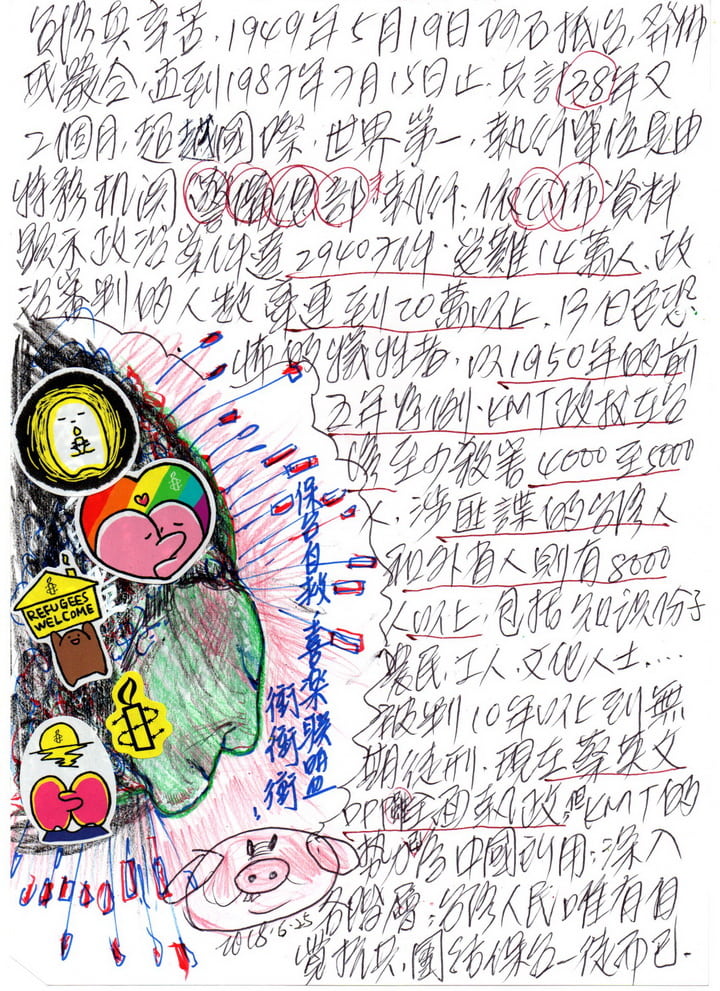 台灣真辛苦,1949年5月19日
戒嚴令,直到1987年7月15日止,共計38年又
2個月,超越國際,世界第一,執行單位是由
特務机関 警備總部 執行,依公佈資料
顯示政治案件達29407件,受難14萬人,政
治審判的人數高達到20萬以上,白色恐
怖的犧牲者,以1950年的前
五年為例,KMT政权在台
灣至少殺害4000至5000
人,涉匪諜的台灣人
和外省人則有8000
人以上,包括知识份子
農民,工人,文化人士....
被判10年以上到無
期徒刑,現在蔡英文
DPP雖全面執政,但KMT的
勢力為中國利用,深入
各階層;台灣人民唯有自
覺抗共,團結保台一徒而已.
保台自救,喜樂聯盟
衝衝衝!
REFUGEES
WELCOME
2018.6.25